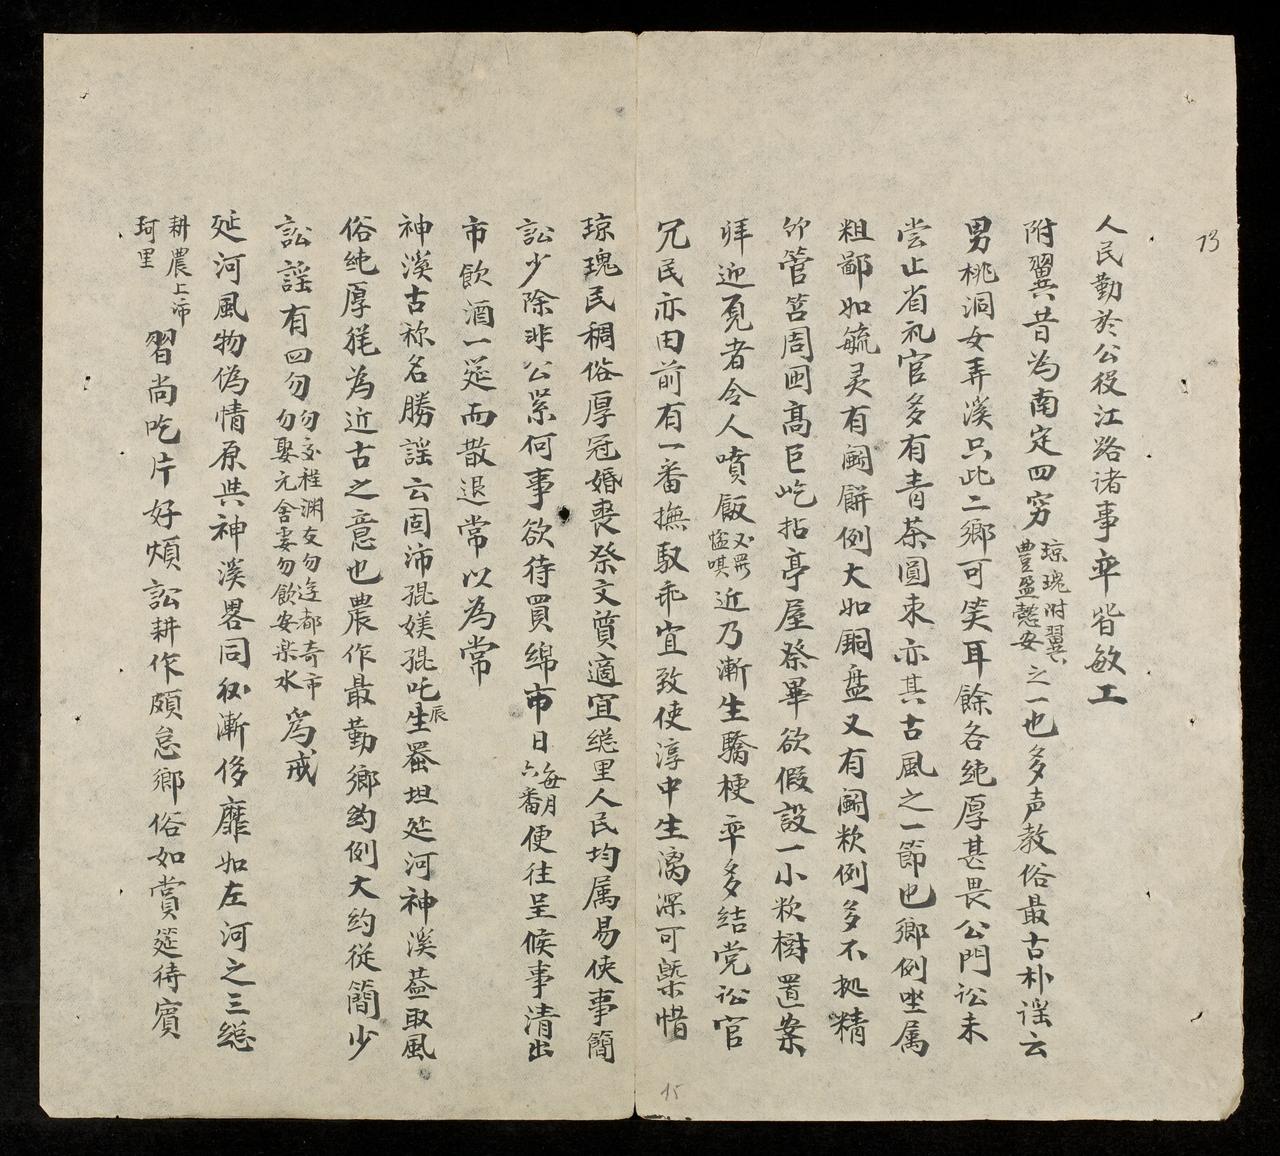 73
人民勤於公役江路诸事率皆敏工
附翼昔為南定四穷琼瑰附翼豊盈懿安之一也多声教俗最古朴谣云
男桃洞女弄溪只此二鄉可笑耳餘各纯厚甚畏公門訟未
尝止省礼官多有青茶圓束亦其古風之一節也鄉例坐属
粗鄙如毓灵有阙餅例大如銅盘又有阙炊例多不拠精
卯管筥周囲髙巨屹拈亭屋祭畢欲假設一小炊樹置案
拜迎覔者令人噴飯近乃漸生驕梗率多結党訟官
冗民亦由前有一番撫馭乖宜致使淳中生漓深可槩惜
琼瑰民稠俗厚冠婚喪祭文質適宜総里人民均属易使事簡
訟少除非公業何事欲待買綿市日每月六番便往呈候事清出
市飲酒一筵而散退常以為常
神溪古称名勝謡云固沛琨媄琨吒生辰蚕坦筵河神溪葢取風
俗纯厚毪為近古之意也農作最勤鄉約例大約從簡少
訟謡有四勿勿交程渊友勿迬都奇市勿娶元舍妻勿飲安楽水為戒
延河風物偽情原與神溪畧同犹漸侈靡如左河之三総
耕農上沛珂里習尚吃片好煩訟耕作頗怠鄉俗如賞筵待賓
15